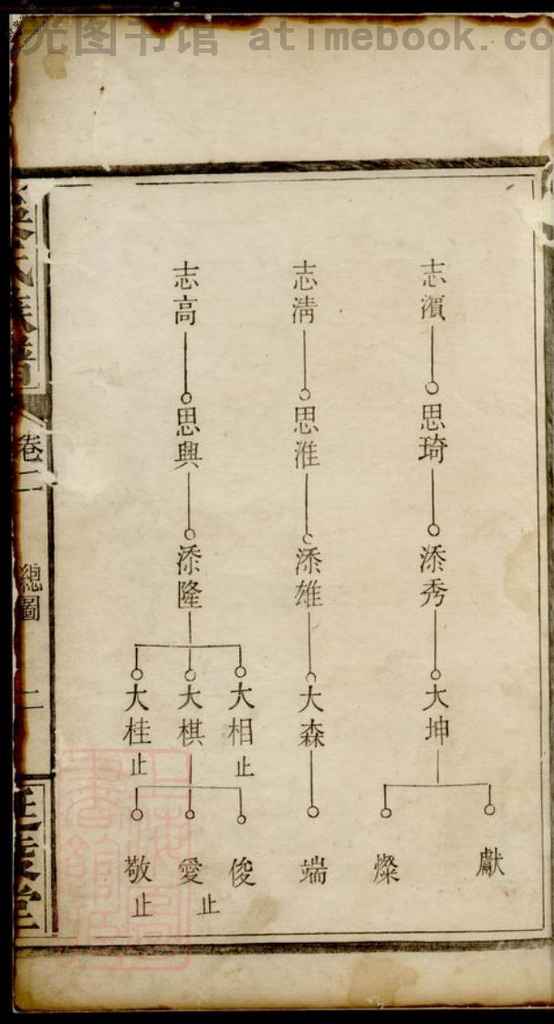 光图书馆 atimebook.co
志濱
思琦
添秀
大坤
獻
燦
志清
思淮
添雄
大森
端
志高
思興
添隆
大相
止
大棋
大桂
止
俊
愛
止
敬
止
氏族譜
卷二
總圖
二
堂